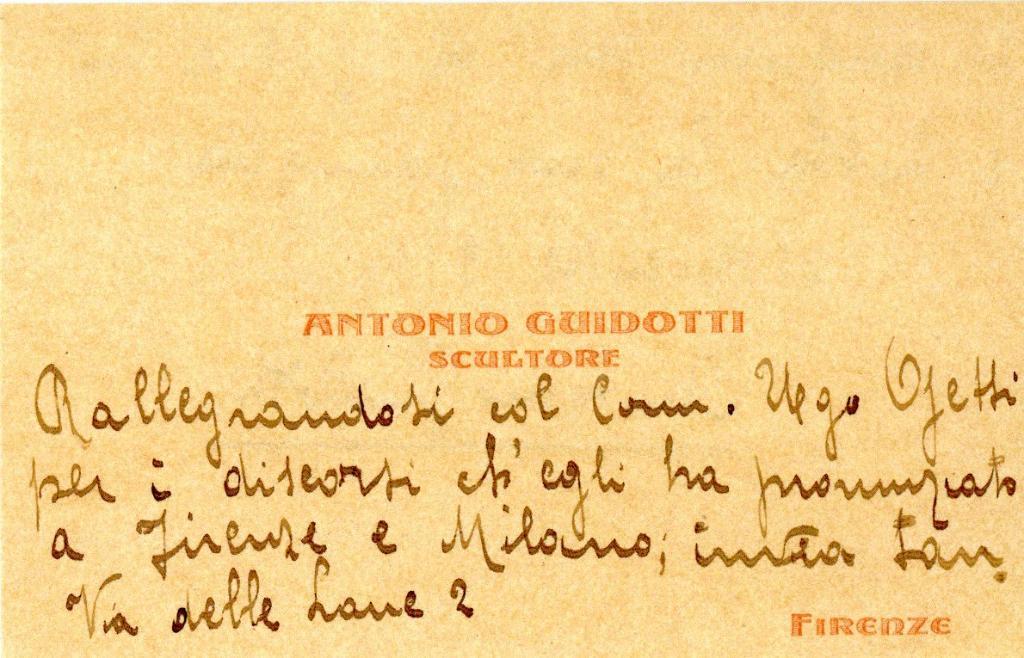 ANTONIO GUIDOTTI
SCULTORE
Rallegrandosi col Comm. Ugo Ojetti
per i discorsi ch'egli ha pronunziato
a Firenze e Milano;
Via delle Lane 2
FIRENZE